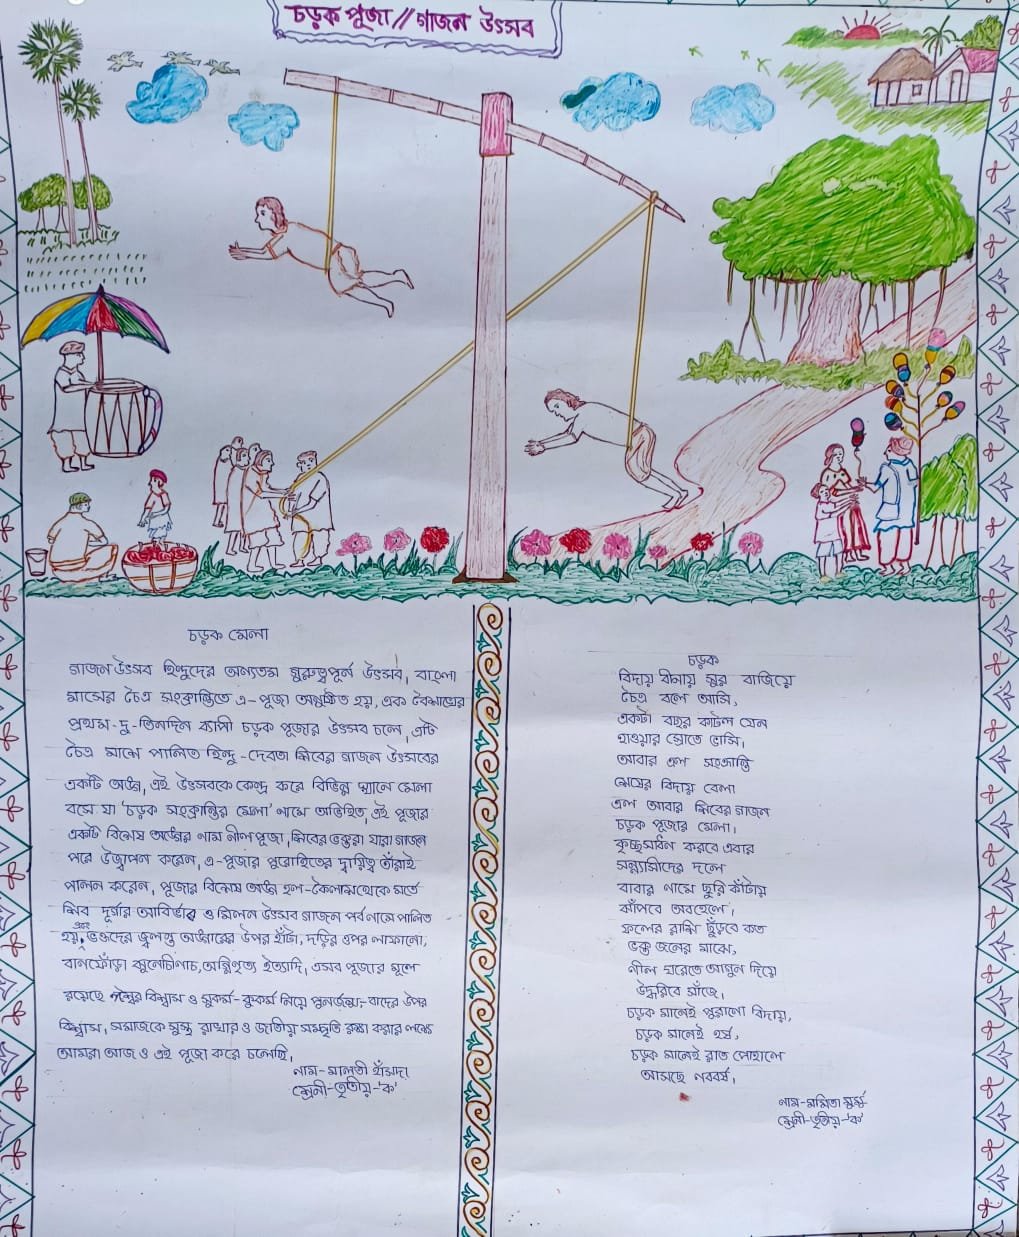 চড়ক পূজা // গাজন উৎসব
চড়ক মেলা
গাজন উৎসব হিন্দুদের অন্যতম গুরুত্বপূর্ন উৎসব, বাংলা
মাসের চৈত্র সংক্রান্তিতে এ-পূজা অনুষ্ঠিত হয়, এবং বৈশাখের
প্রথম-দু-তিনদিন ব্যাপী চড়ক পূজার উৎসব চলে, এটি
চৈত্র মাসে পালিত হিন্দু-দেবতা শিবের গাজন উৎসবের
একটি অঙ্গ, এই উৎসবকে কেন্দ্র করে বিভিন্ন স্থানে মেলা
বসে যা 'চড়ক সংক্রান্তির মেলা' নামে অভিহিত, এই পূজার
একটি বিশেষ অঙ্গের নাম নীলপূজা, শিবের ভক্তরা যারা গাজন
পরে উদ্যাপন করেন, এ-পূজার পুরোহিতের দায়িত্ব তাঁরাই
পালন করেন, পূজার বিশেষ অঙ্গ হল-কৈলাসথেকে মর্তে
শিব দূর্গার আবির্ভাব ও মিলন উৎসব গাজন পর্ব নামে পালিত
হয়, এবং ভক্তদের জ্বলন্ত অঙ্গারের উপর হাঁটা, দড়ির ওপর লাফানো,
বানফোঁড়া ঝুলেচিনাচ, অগ্নিনৃত্য ইত্যাদি, এসব পূজার মূলে
রয়েছে বিশ্বাস ও সুকর্ম-কুকর্ম নিয়ে পুনর্জন্ম-বাদের উপর
বিশ্বাস, সমাজকে সুস্থ রাখার ও জাতীয় সংস্কৃতি রক্ষা করার লক্ষ্যে
আমরা আজ ও এই পূজা করে চলেছি,
নাম-মালতী হাঁসদা
শ্রেনী-তৃতীয়-'ক'
চড়ক
বিদায় বীনায় সুর বাজিয়ে
চৈত্র বলে আসি,
একটা বছর কাটল যেন
হাওয়ার স্রোতে ভাসি,
আবার এল সংক্রান্তি
শেষের বিদায় বেলা
এল আবার শিবের গাজন
চড়ক পূজার মেলা,
কৃচ্ছসাধন করবে এবার
সন্ন্যাসীদের দলে
বাবার নামে ছুরি কাঁটায়
ঝাঁপবে অবহেলে,
ফলের রাশি ছুঁড়বে কত
ভক্ত জনের মাঝে,
নীল ঘরেতে আগুন দিয়ে
উদ্ধরিবে সাঁজে,
চড়ক মানেই পুরানো বিদায়,
চড়ক মানেই হর্ষ,
চড়ক মানেই রাত পোহালে
আসছে নববর্ষ,
নাম-মমিতা মুর্মূ
শ্রেনী-তৃতীয়-'ক'